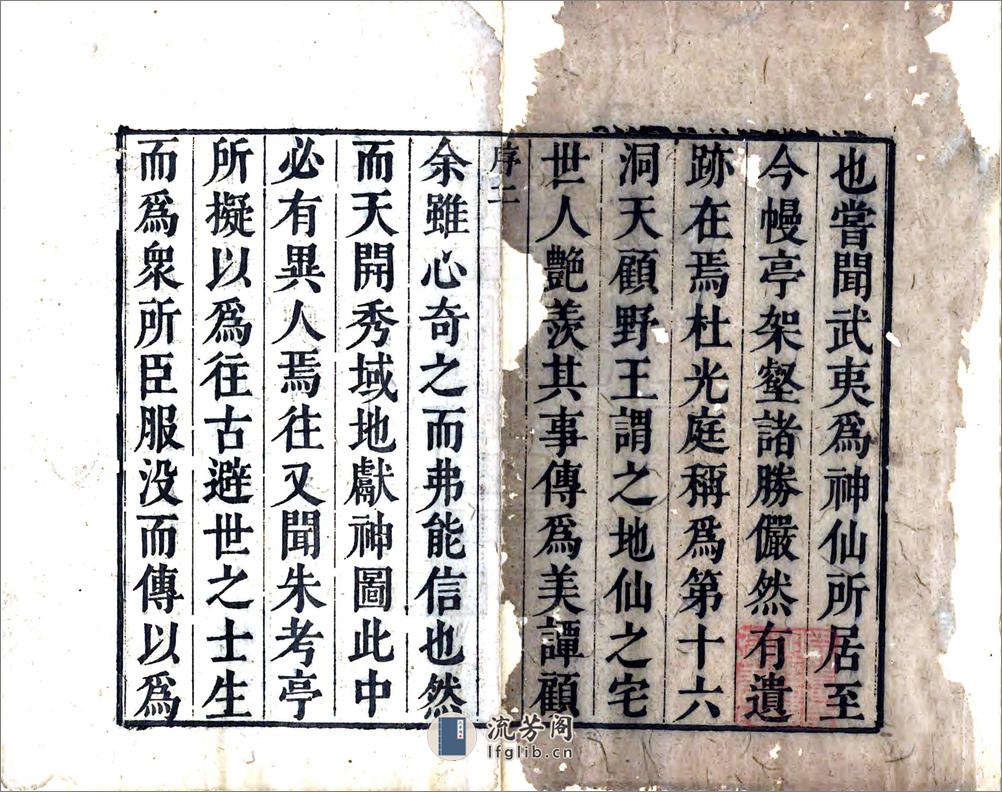 也嘗聞武夷爲神仙所居至
今幔亭架壑諸勝儼然有遺
跡在焉杜光庭稱爲第十六
洞天顧野王謂之地仙之宅
世人艷羨其事傳爲美譚顧
序二
余雖心奇之而弗能信也然
而天開秀域地獻神圖此中
必有異人焉往又聞朱考亭
所擬以爲往古避世之士生
而爲衆所臣服没而傳以爲
流芳阁
lfglib.cn